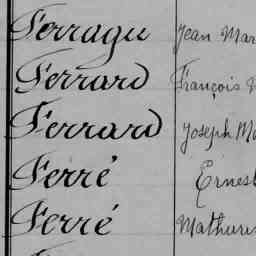 Ferragu Jean Mar
Ferrard François
Ferrard Joseph Ma
Ferré Ernest
Ferré Mathurin